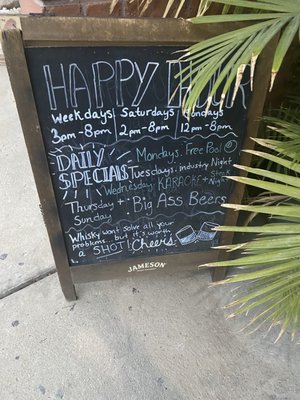 HAPPY HOUR
Weekdays Saturdays Mondays
3am-8pm 2pm-8pm 12pm-8pm
DAILY SPECIALS
Mondays. Free Pool
Tuesdays. Industry Night
Wednesday KARAOKE + Night
Thursday +
Sunday : Big Ass Beers
Whisky wont solve all your
problems... but it's worth
a SHOT! Cheers
JAMESON